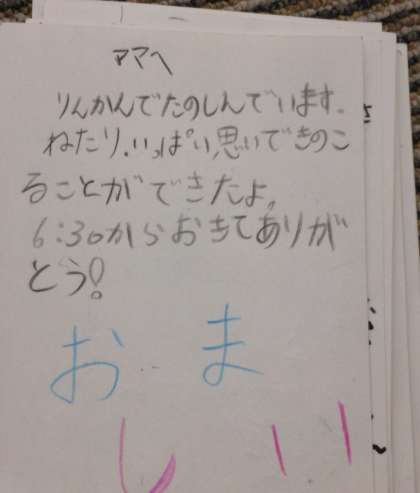 ママへ
りんかんでたのしんでいます。
ねたり、いっぱい思いでをのこ
ることができたよ。
6:30からおきてありが
とう!
おま
しい